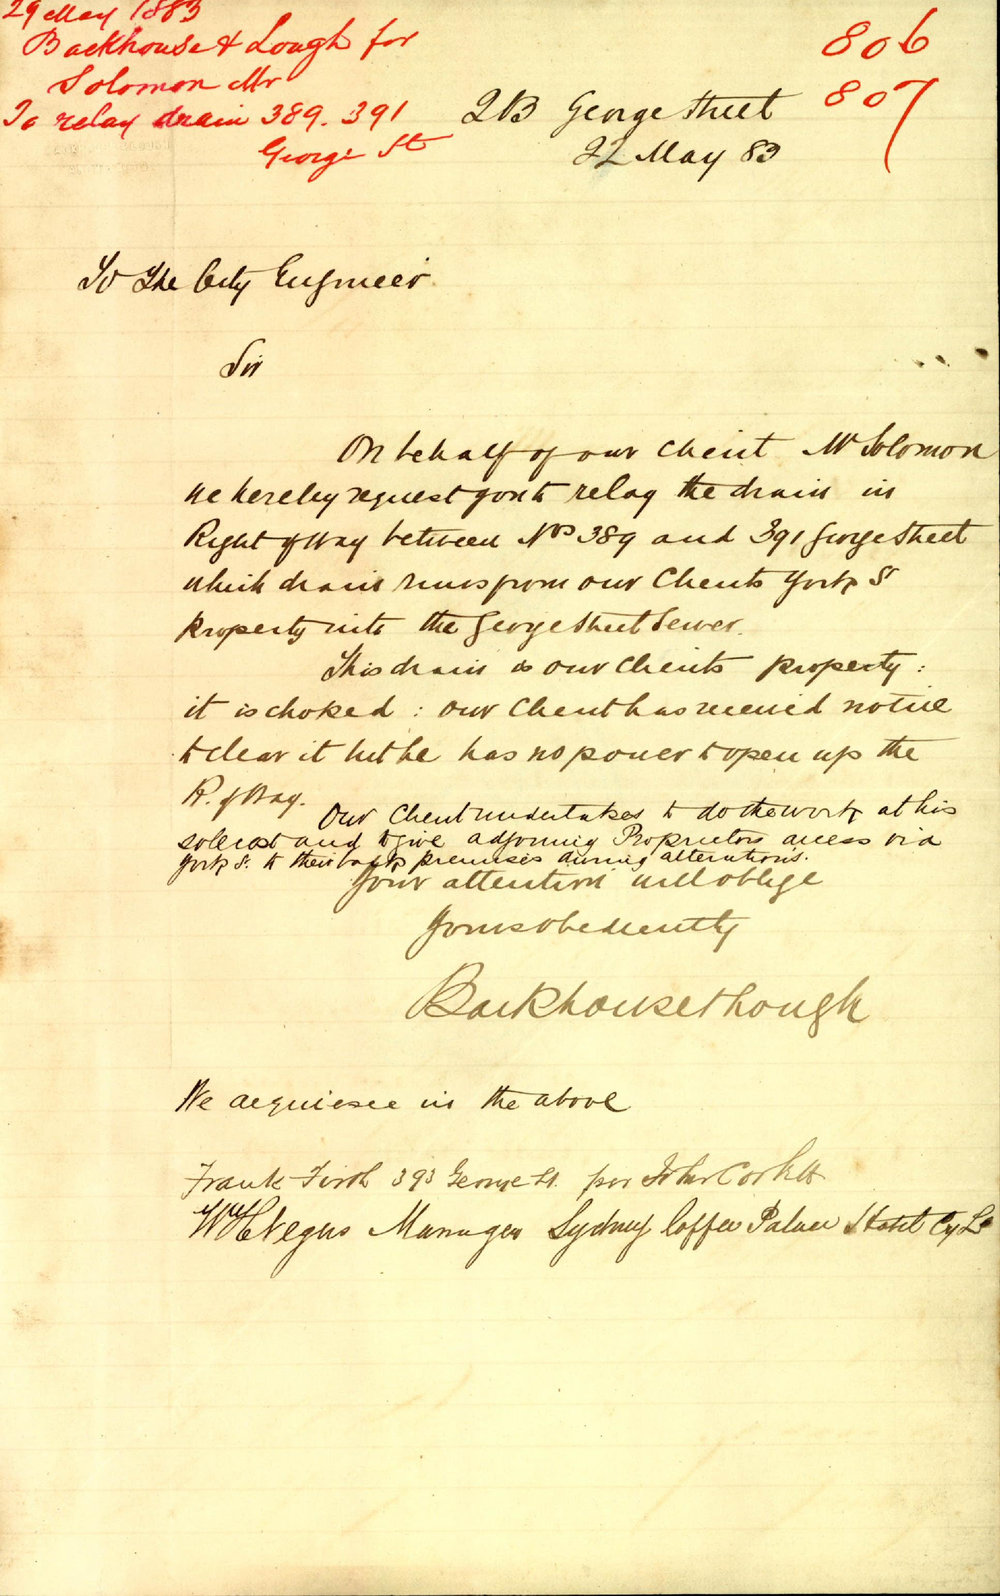 29 May 1883
Backhouse & Lough for
Solomon Mr
To relay drain 389. 391
George St
806
807
213 George Street
22 May 83
To The City Engineer
Sir
On behalf of our Client Mr Solomon
we hereby request you to relay the drain in
Right of Way between Nos 389 and 391 George Street
which drain runs from our Clients York St
property into the George Street Sewer.
This drain is our Clients property :
it is choked : our Client has received notice
to clear it but he has no power to open up the
R. of Way.
Our Client undertakes to do the work at his
sole cost and to give adjoining Proprietors access via
York St. to their back premises during alterations.
Your attention will oblige
Yours obediently
Backhouse & Lough
We acquiesce in the above
Frank Firth 393 George St. per John Corbett
Wm H Negus Manager Sydney Coffee Palace Hotel Cy Ld